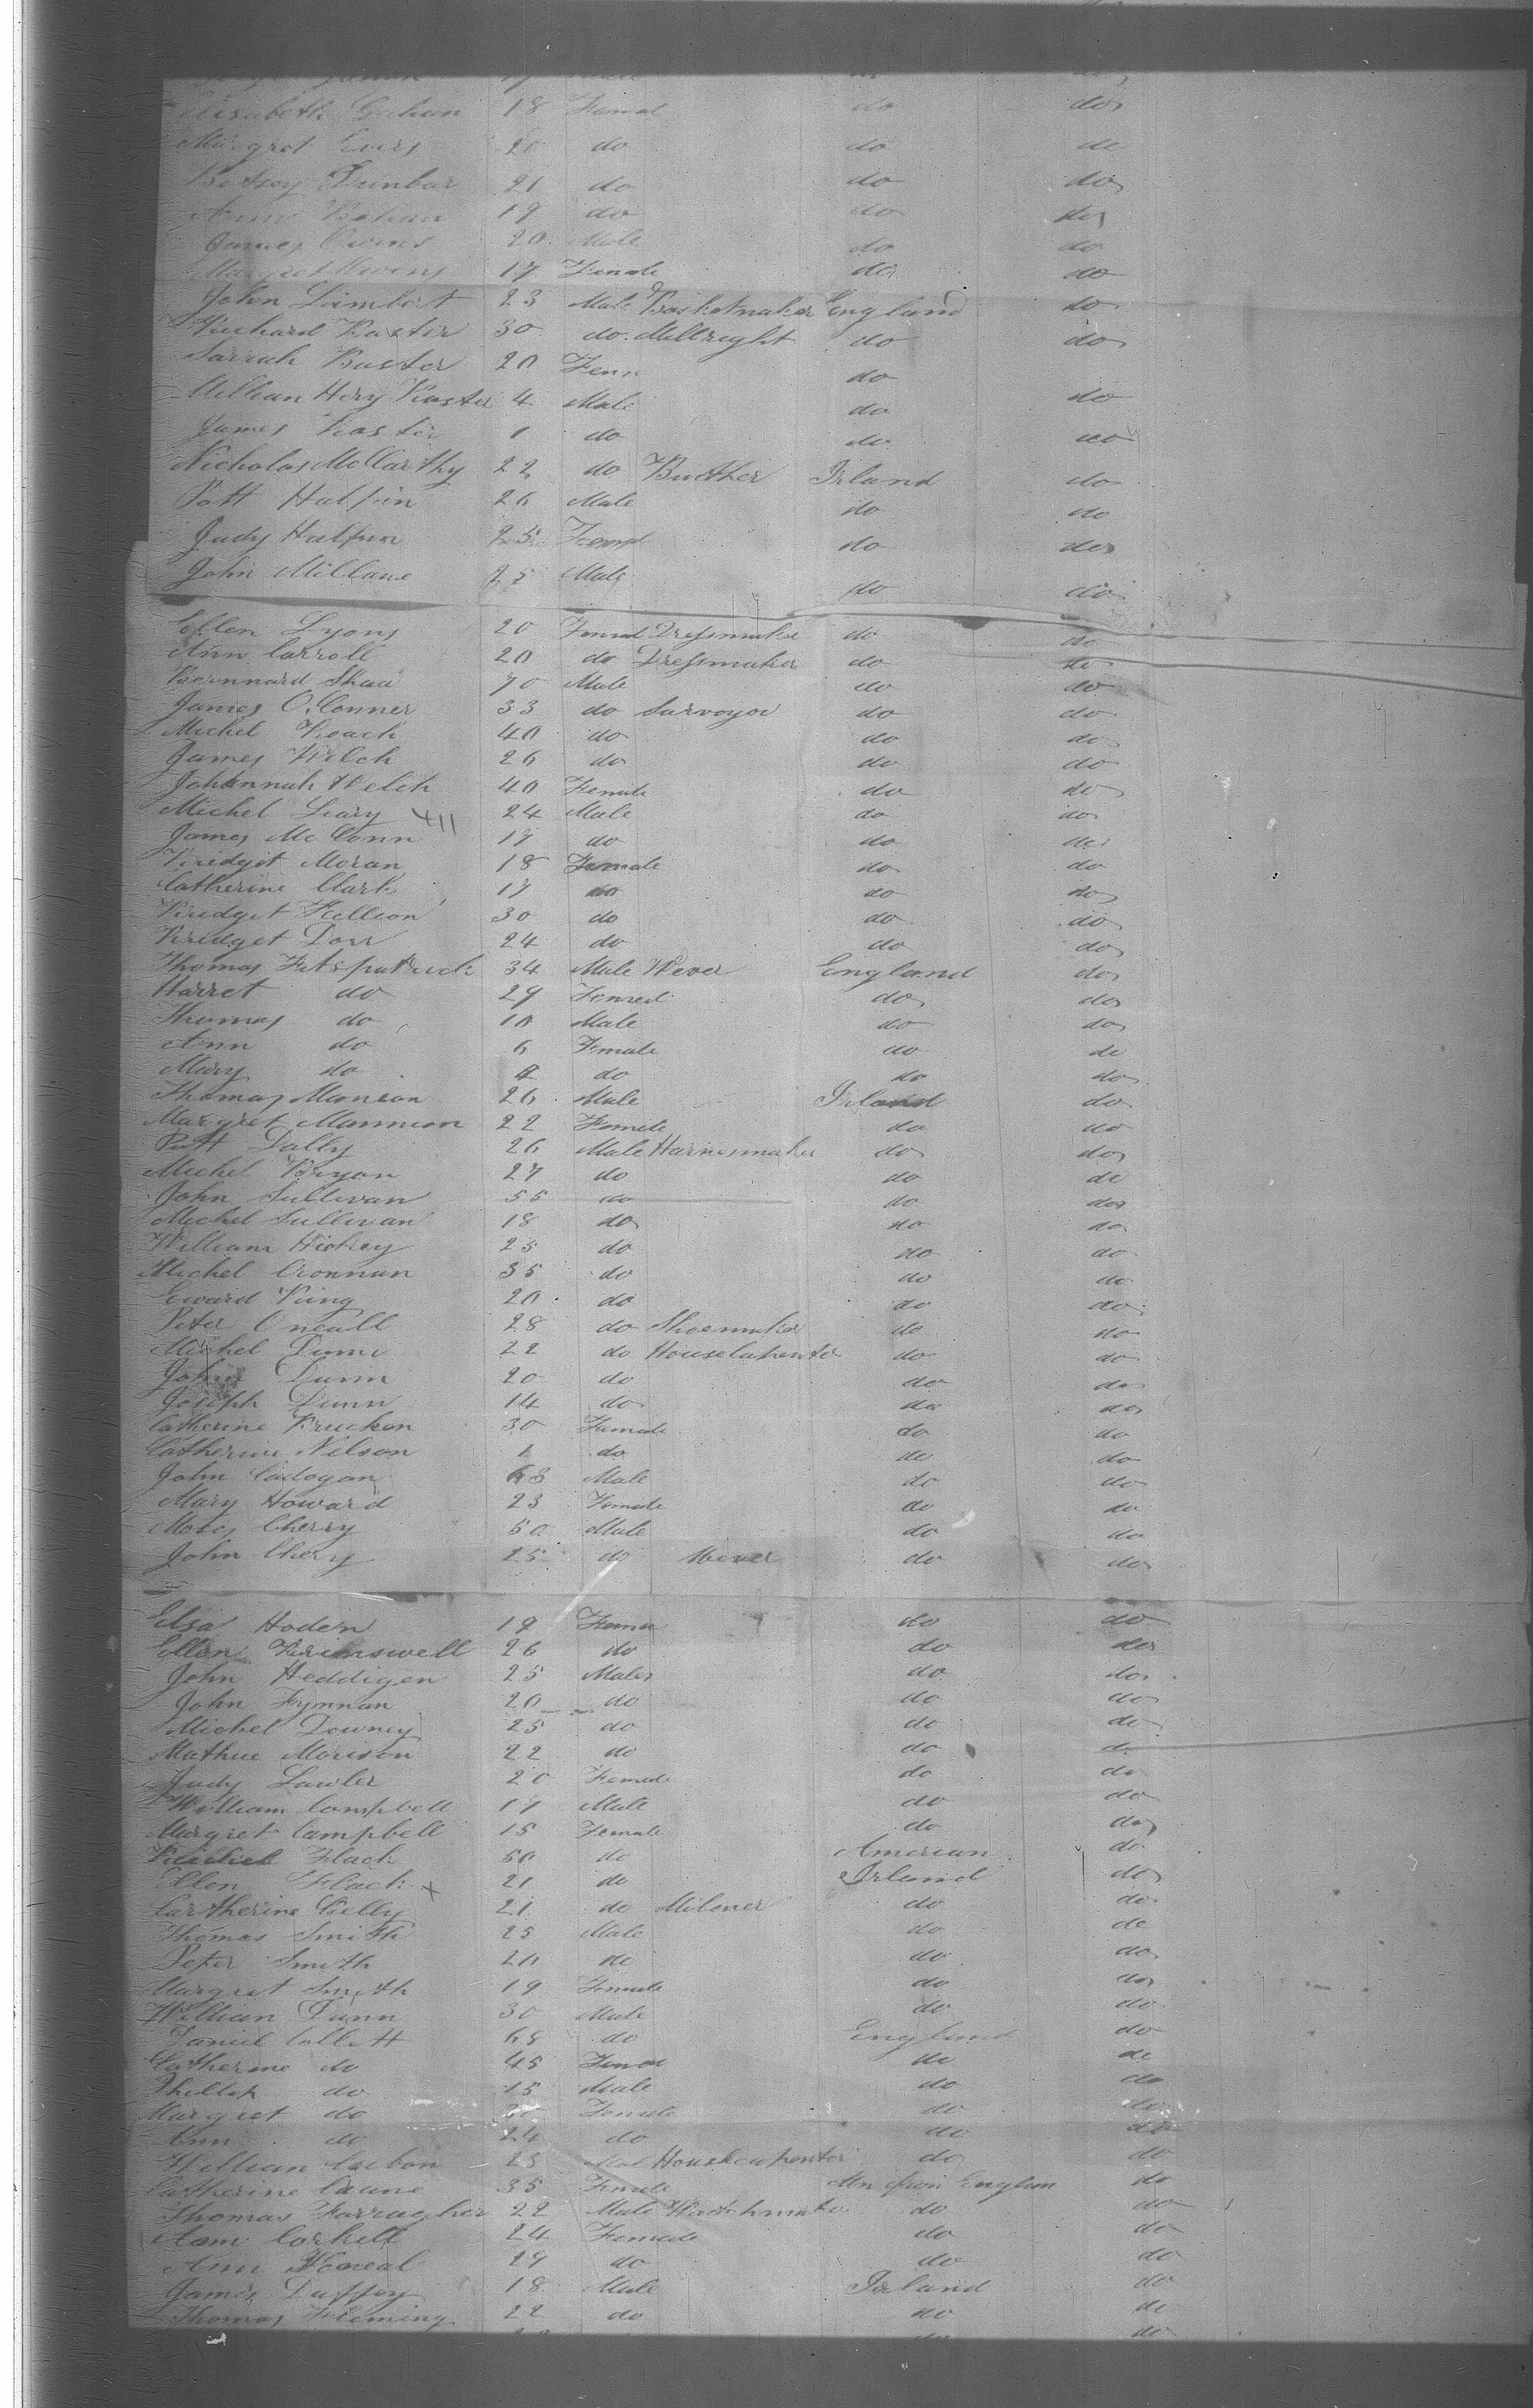 Elisabeth Gahan 18 Femal do do
Margret Evers 20 do do do
Betsey Dunbar 21 do do do
Ann Bohan 19 do do do
James Owens 20 Male do do
Margret Owens 17 Female do do
John Lambert 23 Male Basketmaker England do
Richard Baxter 30 do Millright do do
Sarrah Baxter 20 Fem do
William Hery Baxter 4 Male do do
James Baxter 1 do do do
Nicholas McCarthy 22 do Buther Irland do
Patt Halpin 26 Male do do
Judy Halpin 25 Femal do do
John Millane 25 Male do do
Ellen Lyons 20 Femal Dressmaker do do
Ann Carroll 20 do Dressmaker do do
Bernnard Shaa 70 Male do do
James O.Conner 33 do Survoyor do do
Michel Roach 40 do do do
James Welch 26 do do do
Johannah Welch 40 Female do do
Michel Leary 24 Male do do
James Mc Conn 17 do do do
Bridgit Moran 18 Female do do
Catherine Clark 17 do do do
Bridget Kelleon 30 do do do
Bridget Dorr 24 do do do
Thomas Fitspatrick 34 Male Wever England do
Harret do 29 Femeal do do
Thomas do 10 Male do do
Ann do 6 Female do do
Mary do 2 do do do
Thomas Manion 26 Male Irland do
Margret Mannion 22 Female do do
Patt Dally 26 Male Harnesmaker do do
Michel Bryan 27 do do do
John Sullivan 55 do do do
Michel Sullivan 18 do do do
William Hickey 25 do do do
Michel Cronnan 35 do do do
Eward King 20 do do do
Peter Oneall 28 do Shoemaker do do
Michel Dunn 22 do Housecapenter do do
John Dunn 20 do do do
Joseph Dunn 14 do do do
Catherine Brucken 30 Female do do
Catherine Nelson 1 do do do
John Cadogan 63 Male do do
Mary Howard 23 Female do do
Moses Cherry 50 Male do do
John Chery 25 do Wever do do
Elsa Hoden 19 Femal do do
Ellen Brimswell 26 do do do
John Heddigen 25 Male do do
John Fynnan 20 do do do
Michel Downey 25 do do do
Mathue Morison 22 do do do
Judy Lawler 20 Female do do
William Campbell 17 Male do do
Margret Campbell 15 Female do do
Flack 50 do American do
Ellen Flack 21 do Irland do
Cartherine Kelly 21 do Milener do do
Thomas Smith 25 Male do do
Peter Smith 20 do do do
Margret Smith 19 Female do do
William Dunn 30 Male do do
Daniel Collett 68 do England do
Catherine do 45 Femal do do
Phillip do 15 Male do do
Margret do Female do do
Ann do 24 do do do
William Carbon 25 Male Housecapenter do do
Catherine Caune 35 Female do
Thomas Farragher 22 Male Watchmaker do do
Corkill 24 Female do do
Ann 29 do do do
James Duffey 18 Male Irland do
Thomas Fleming 22 do do do